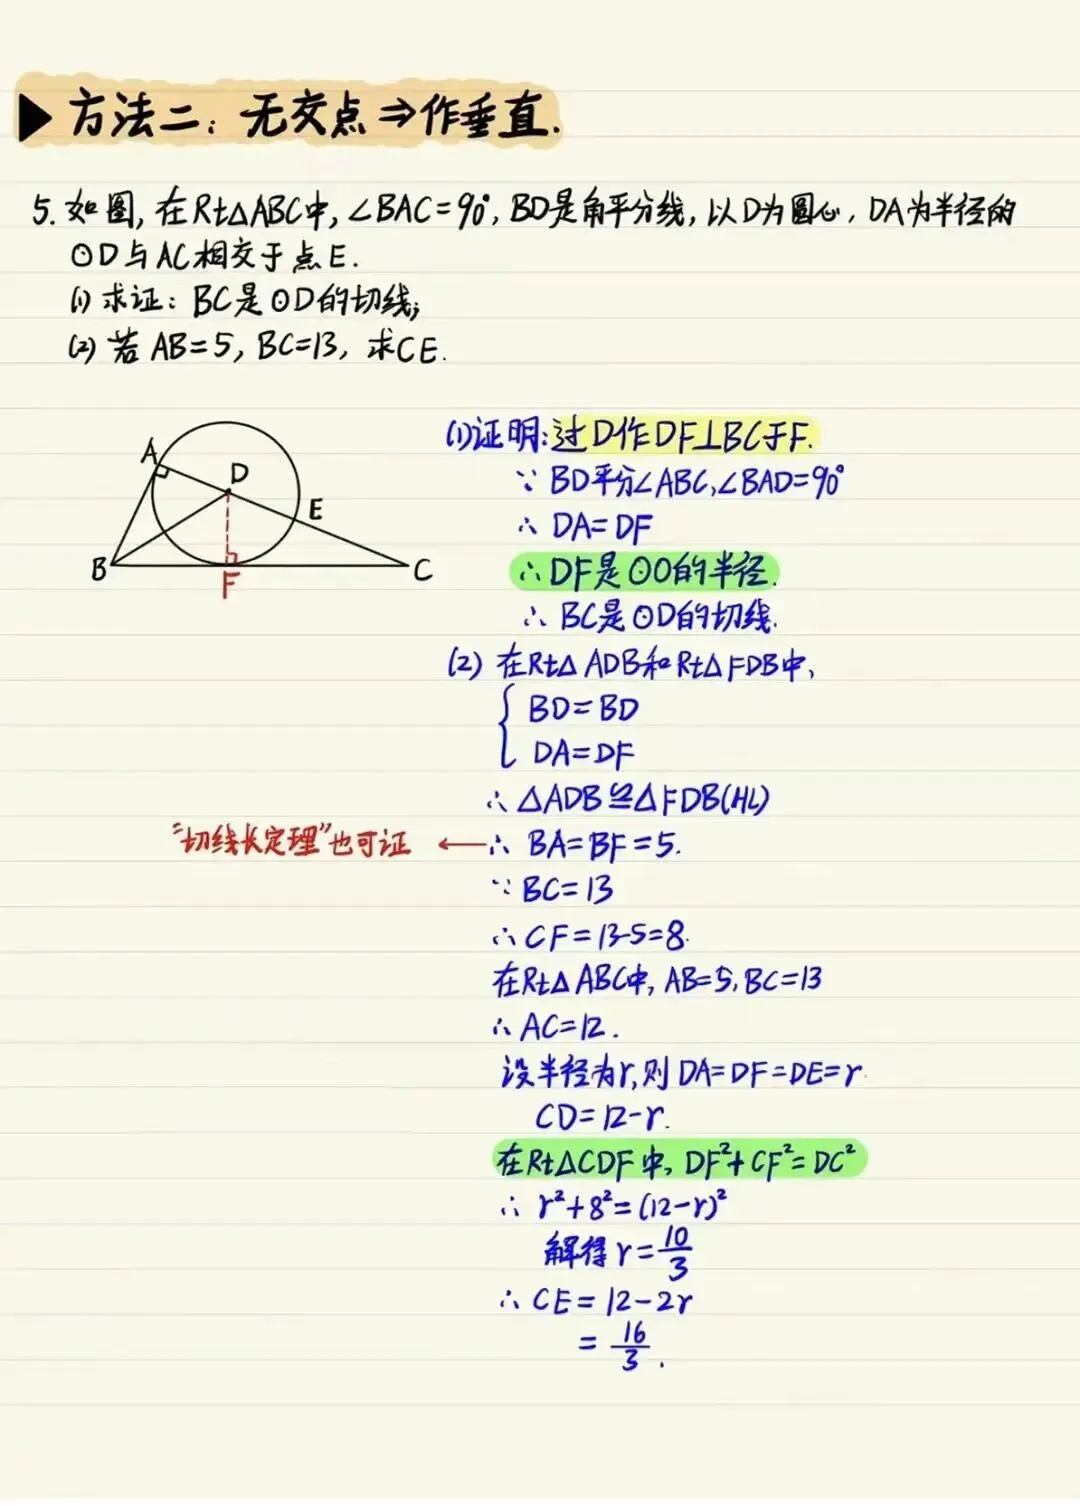 方法二：无交点⇒作垂直.
5. 如图, 在Rt△ABC中, ∠BAC=90°, BD是角平分线, 以D为圆心, DA为半径的
⊙D与AC相交于点E.
(1) 求证: BC是⊙D的切线;
(2) 若AB=5, BC=13, 求CE.
A
D
E
B
F
C
(1)证明:过D作DF⊥BC于F.
∵ BD平分∠ABC,∠BAD=90°
∴ DA=DF
∴DF是⊙O的半径.
∴ BC是⊙D的切线.
(2) 在Rt△ADB和Rt△FDB中,
{ BD=BD
DA=DF
∴ △ADB≌△FDB(HL)
"切线长定理"也可证 ← ∴ BA=BF=5.
∵ BC=13
∴ CF=13-5=8.
在Rt△ABC中, AB=5, BC=13
∴ AC=12.
设半径为r,则DA=DF=DE=r
CD=12-r.
在Rt△CDF中, DF²+CF²=DC²
∴ r²+8²=(12-r)²
解得r=10/3
∴ CE=12-2r
=16/3.